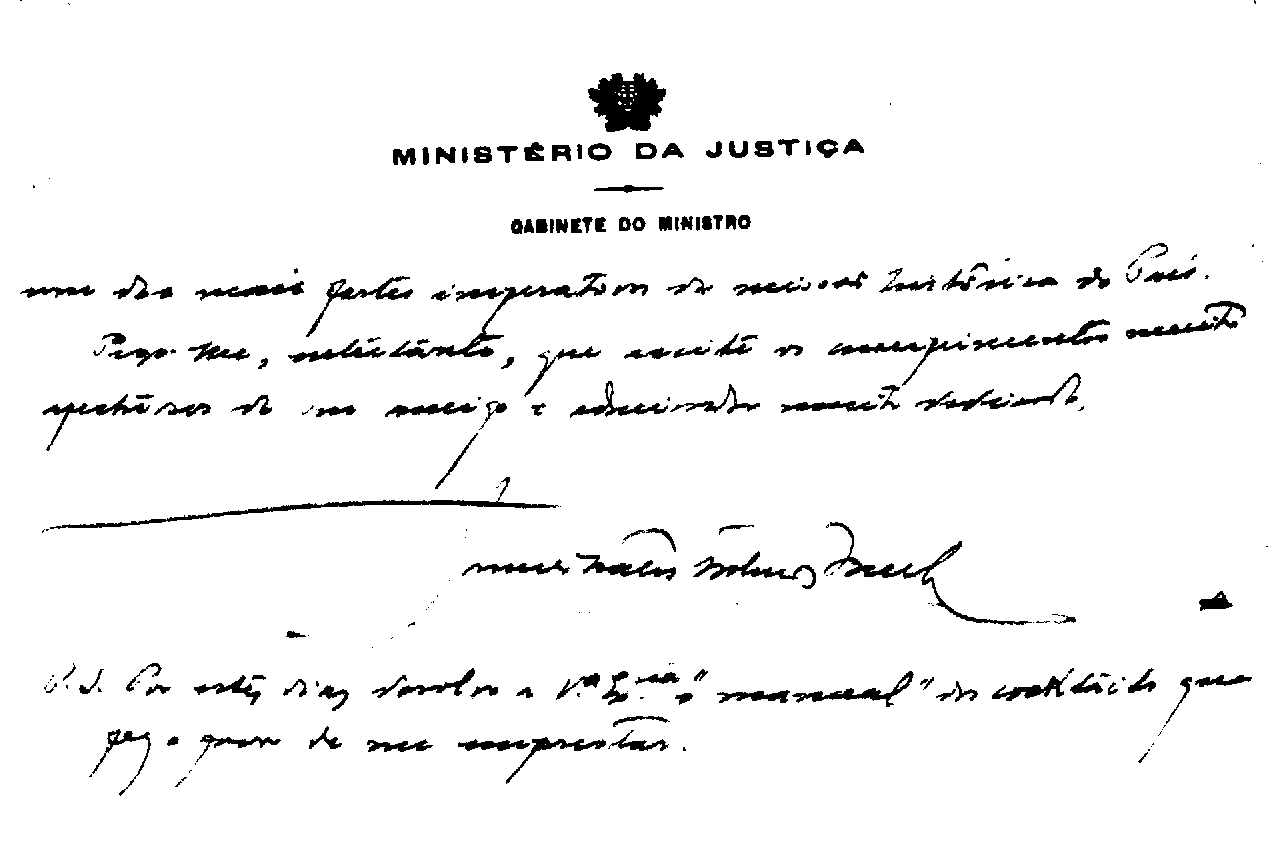 MINISTÉRIO DA JUSTIÇA
GABINETE DO MINISTRO
um dos mais fortes imperativos da missão histórica do País.
Peço-lhe, entretanto, que aceite os cumprimentos muito
afectuosos de um amigo e admirador muito dedicado,
P.S. Por estes dias devolvo a V.ª Ex.cia o "manual" dos cocktails que
fez o favor de me emprestar.